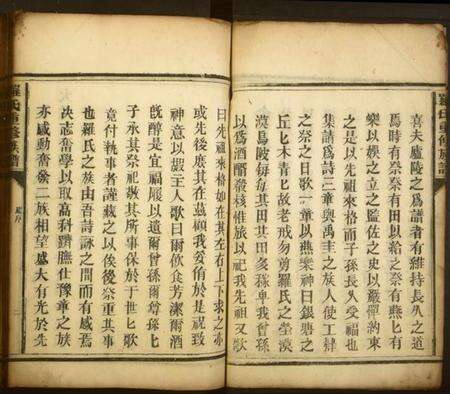 羅氏重修族譜
喜夫廬陵之為譜者有維持長久之道
焉時有祭祭有田以給之祭有燕匕有
樂以娛之立之監佐之史以嚴彈約束
之是以先祖來格而子孫長久受福也
集請為詩三章與禹圭之族人使工肄
之祭之日歌一章以燕樂神曰銀塘之
丘匕木青匕故老戒勿剪羅氏之塋漠
波鳥陂每每其田其田多稼我曾孫
以為酒醑殽核惟旅以祀我先祖又歌
曰先祖來格如在其左右上下求之亦
或先後庶其在茲顧我爰侑於是祝致
神意以嘏主人歌曰爾飲食芳潔爾酒
既醇是宜福履以遺爾曾孫爾曾孫匕
子承其祭祀敬其所事保於于世匕歌
竟付執事者謹藏之以俟後祭重其事
也羅氏之族由吾詩詠之間而有感焉
決志奮學以取高科躋膴仕豫章之族
亦感動奮發二族相望盛大有光於先
羅氏重修族譜